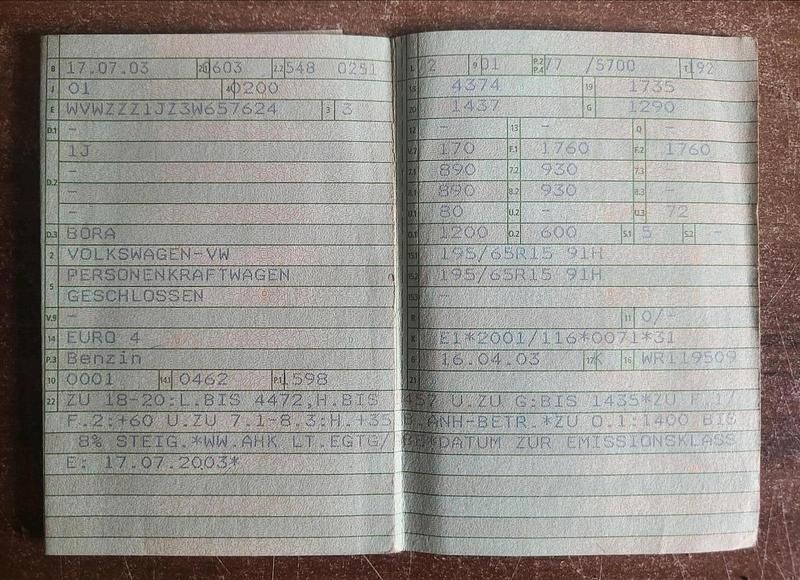 B 17.07.03 2.1 0603 2.2 548 0251
J 01 4 0200
E WVWZZZ1JZ3W657624 3 3
D.1 -
1J
-
D.2 -
-
D.3 BORA
2 VOLKSWAGEN-VW
PERSONENKRAFTWAGEN
5 GESCHLOSSEN
V.9 -
14 EURO 4
P.3 Benzin
10 0001 14.1 0462 P.1 1598
L 2 9 01 P.2 P.4 77 /5700 T 192
18 4374 19 1735
20 1437 G 1290
12 - 13 - Q -
V.7 170 F.1 1760 F.2 1760
7.1 890 7.2 930 7.3 -
8.1 890 8.2 930 8.3 -
U.1 80 U.2 - U.3 72
O.1 1200 O.2 600 S.1 5 S.2 -
15.1 195/65R15 91H
15.2 195/65R15 91H
15.3 -
R - 11 0/-
K E1*2001/116*0071*31
6 16.04.03 17 K 16 WR119509
21
22 ZU 18-20:L.BIS 4472,H.BIS 1457 U.ZU G:BIS 1435*ZU F.1/
F.2:+60 U.ZU 7.1-8.3:H.+35 B.ANH-BETR.*ZU O.1:1400 BIS
8% STEIG.*WW.AHK LT.EGTG/ BE*DATUM ZUR EMISSIONSKLASS
E: 17.07.2003*